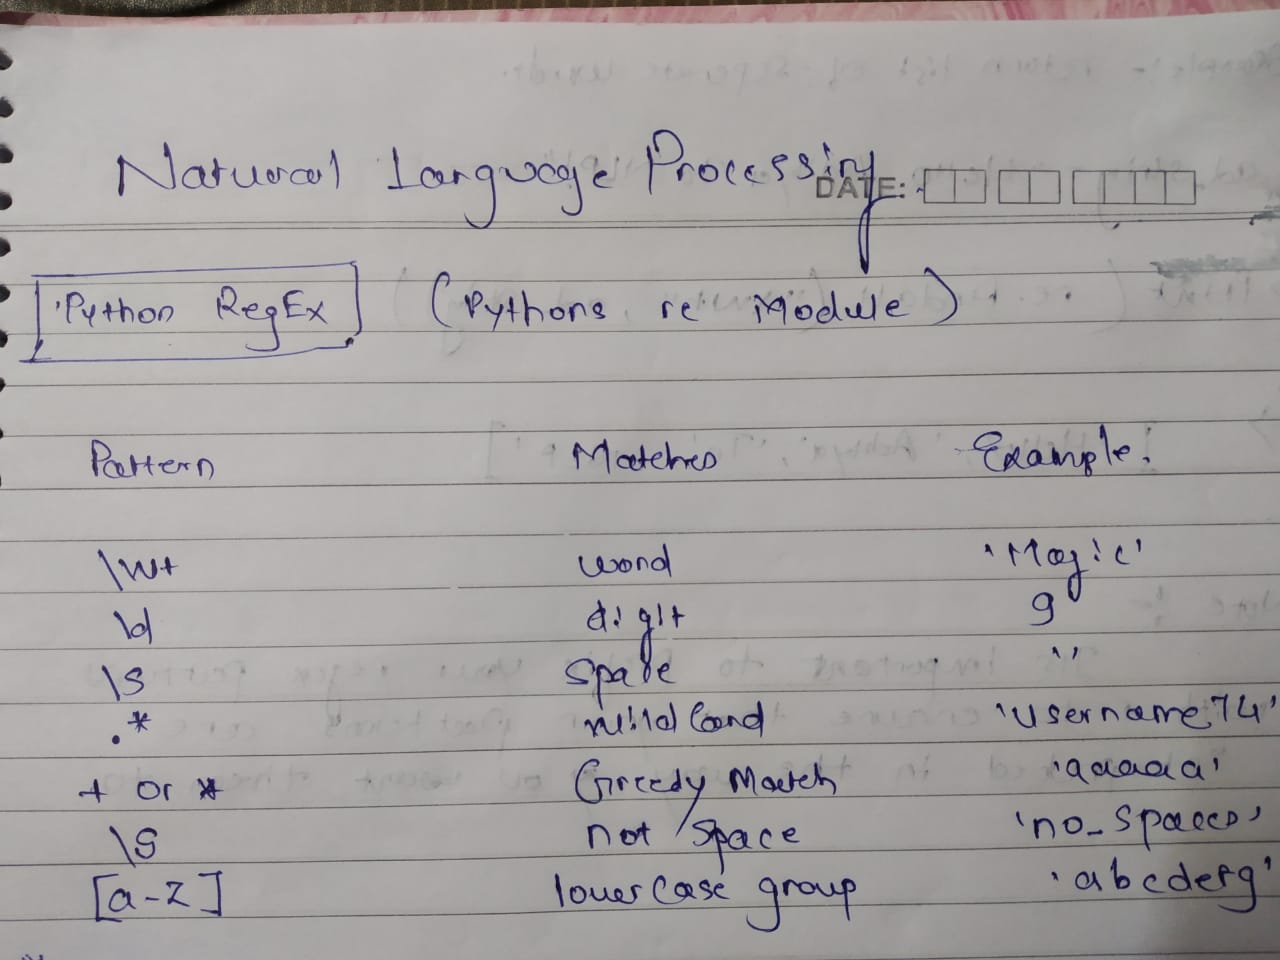 Natural Language Processing
DATE:
Python RegEx (Pythons re Module)
Pattern Matches Example:
\w+ word 'Magic'
\d digit 9
\s space ' '
.* wildcard 'username74'
+ or * Greedy Match 'aaaaa'
\S not space 'no_spaces'
[a-z] lowercase group 'abcdefg'